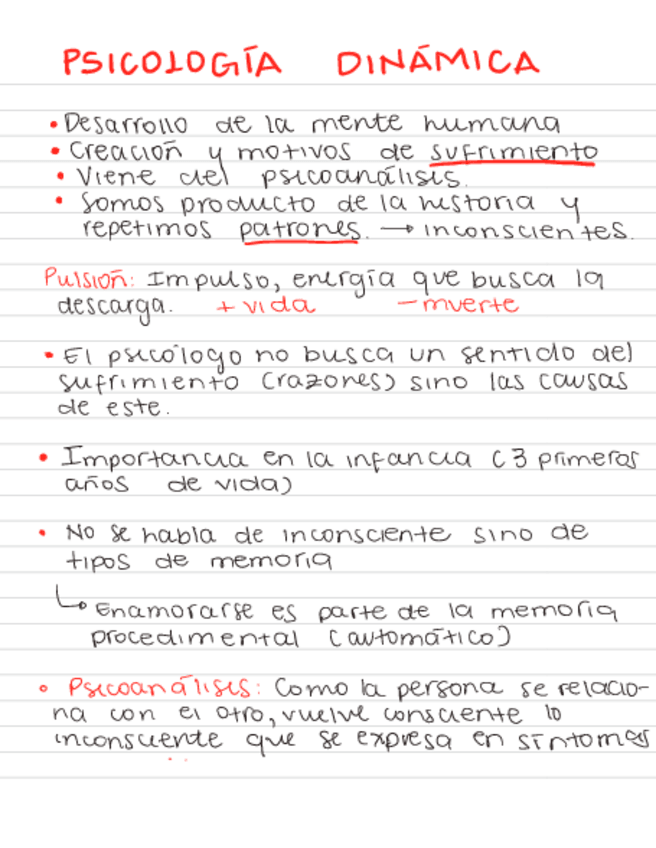 PSICOLOGÍA DINÁMICA
• Desarrollo de la mente humana
• Creación y motivos de sufrimiento
• Viene del psicoanálisis.
• Somos producto de la historia y
repetimos patrones. → inconscientes.
Pulsión: Impulso, energía que busca la
descarga. + vida - muerte
• El psicólogo no busca un sentido del
sufrimiento (razones) sino las causas
de este.
• Importancia en la infancia (3 primeros
años de vida)
• No se habla de inconsciente sino de
tipos de memoria
↳ Enamorarse es parte de la memoria
procedimental (automático)
• Psicoanálisis: Como la persona se relacio-
na con el otro, vuelve consciente lo
inconsciente que se expresa en síntomas